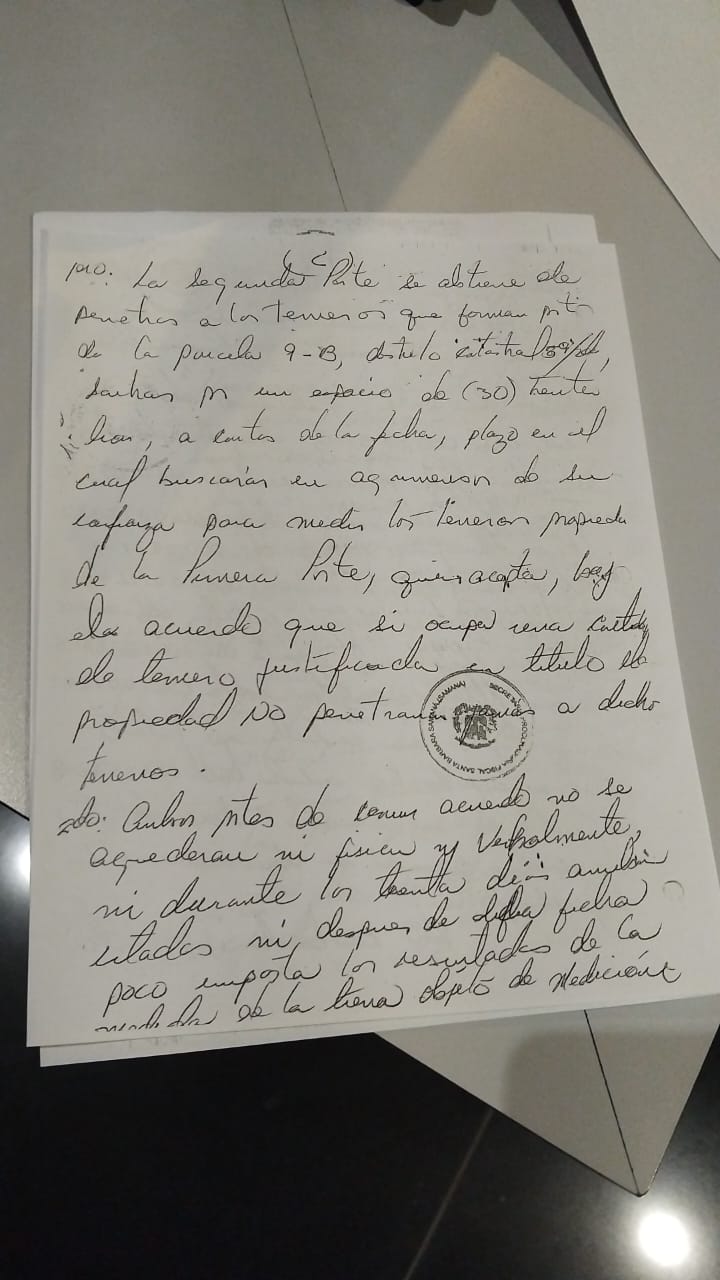 (2)
1ro: La segunda Parte se abtiene de
penetrar a los terrenos que forman pte
de la parcela 9-B, distrito catastral
por un espacio de (30) treinta
dias, a contar de la fecha, plazo en el
cual buscarán un agrimensor de su
confianza para medir los terrenos propiedad
de la Primera Pte, quien acepta,
acuerdo que si ocupa una cantidad
de terreno justificada en titulo de
propiedad NO penetrara jamas a dicho
terrenos.
2do: Ambos ptes de comun acuerdo no se
agrederan ni fisica y Verbalmente,
ni durante los treinta dias
citados ni despues de dicha fecha
poco importa los resultados de la
medida de la tierra objeto de medición
SECRETARIA PROCURADURIA FISCAL SANTA BARBARA SAMANA (SAMANA)